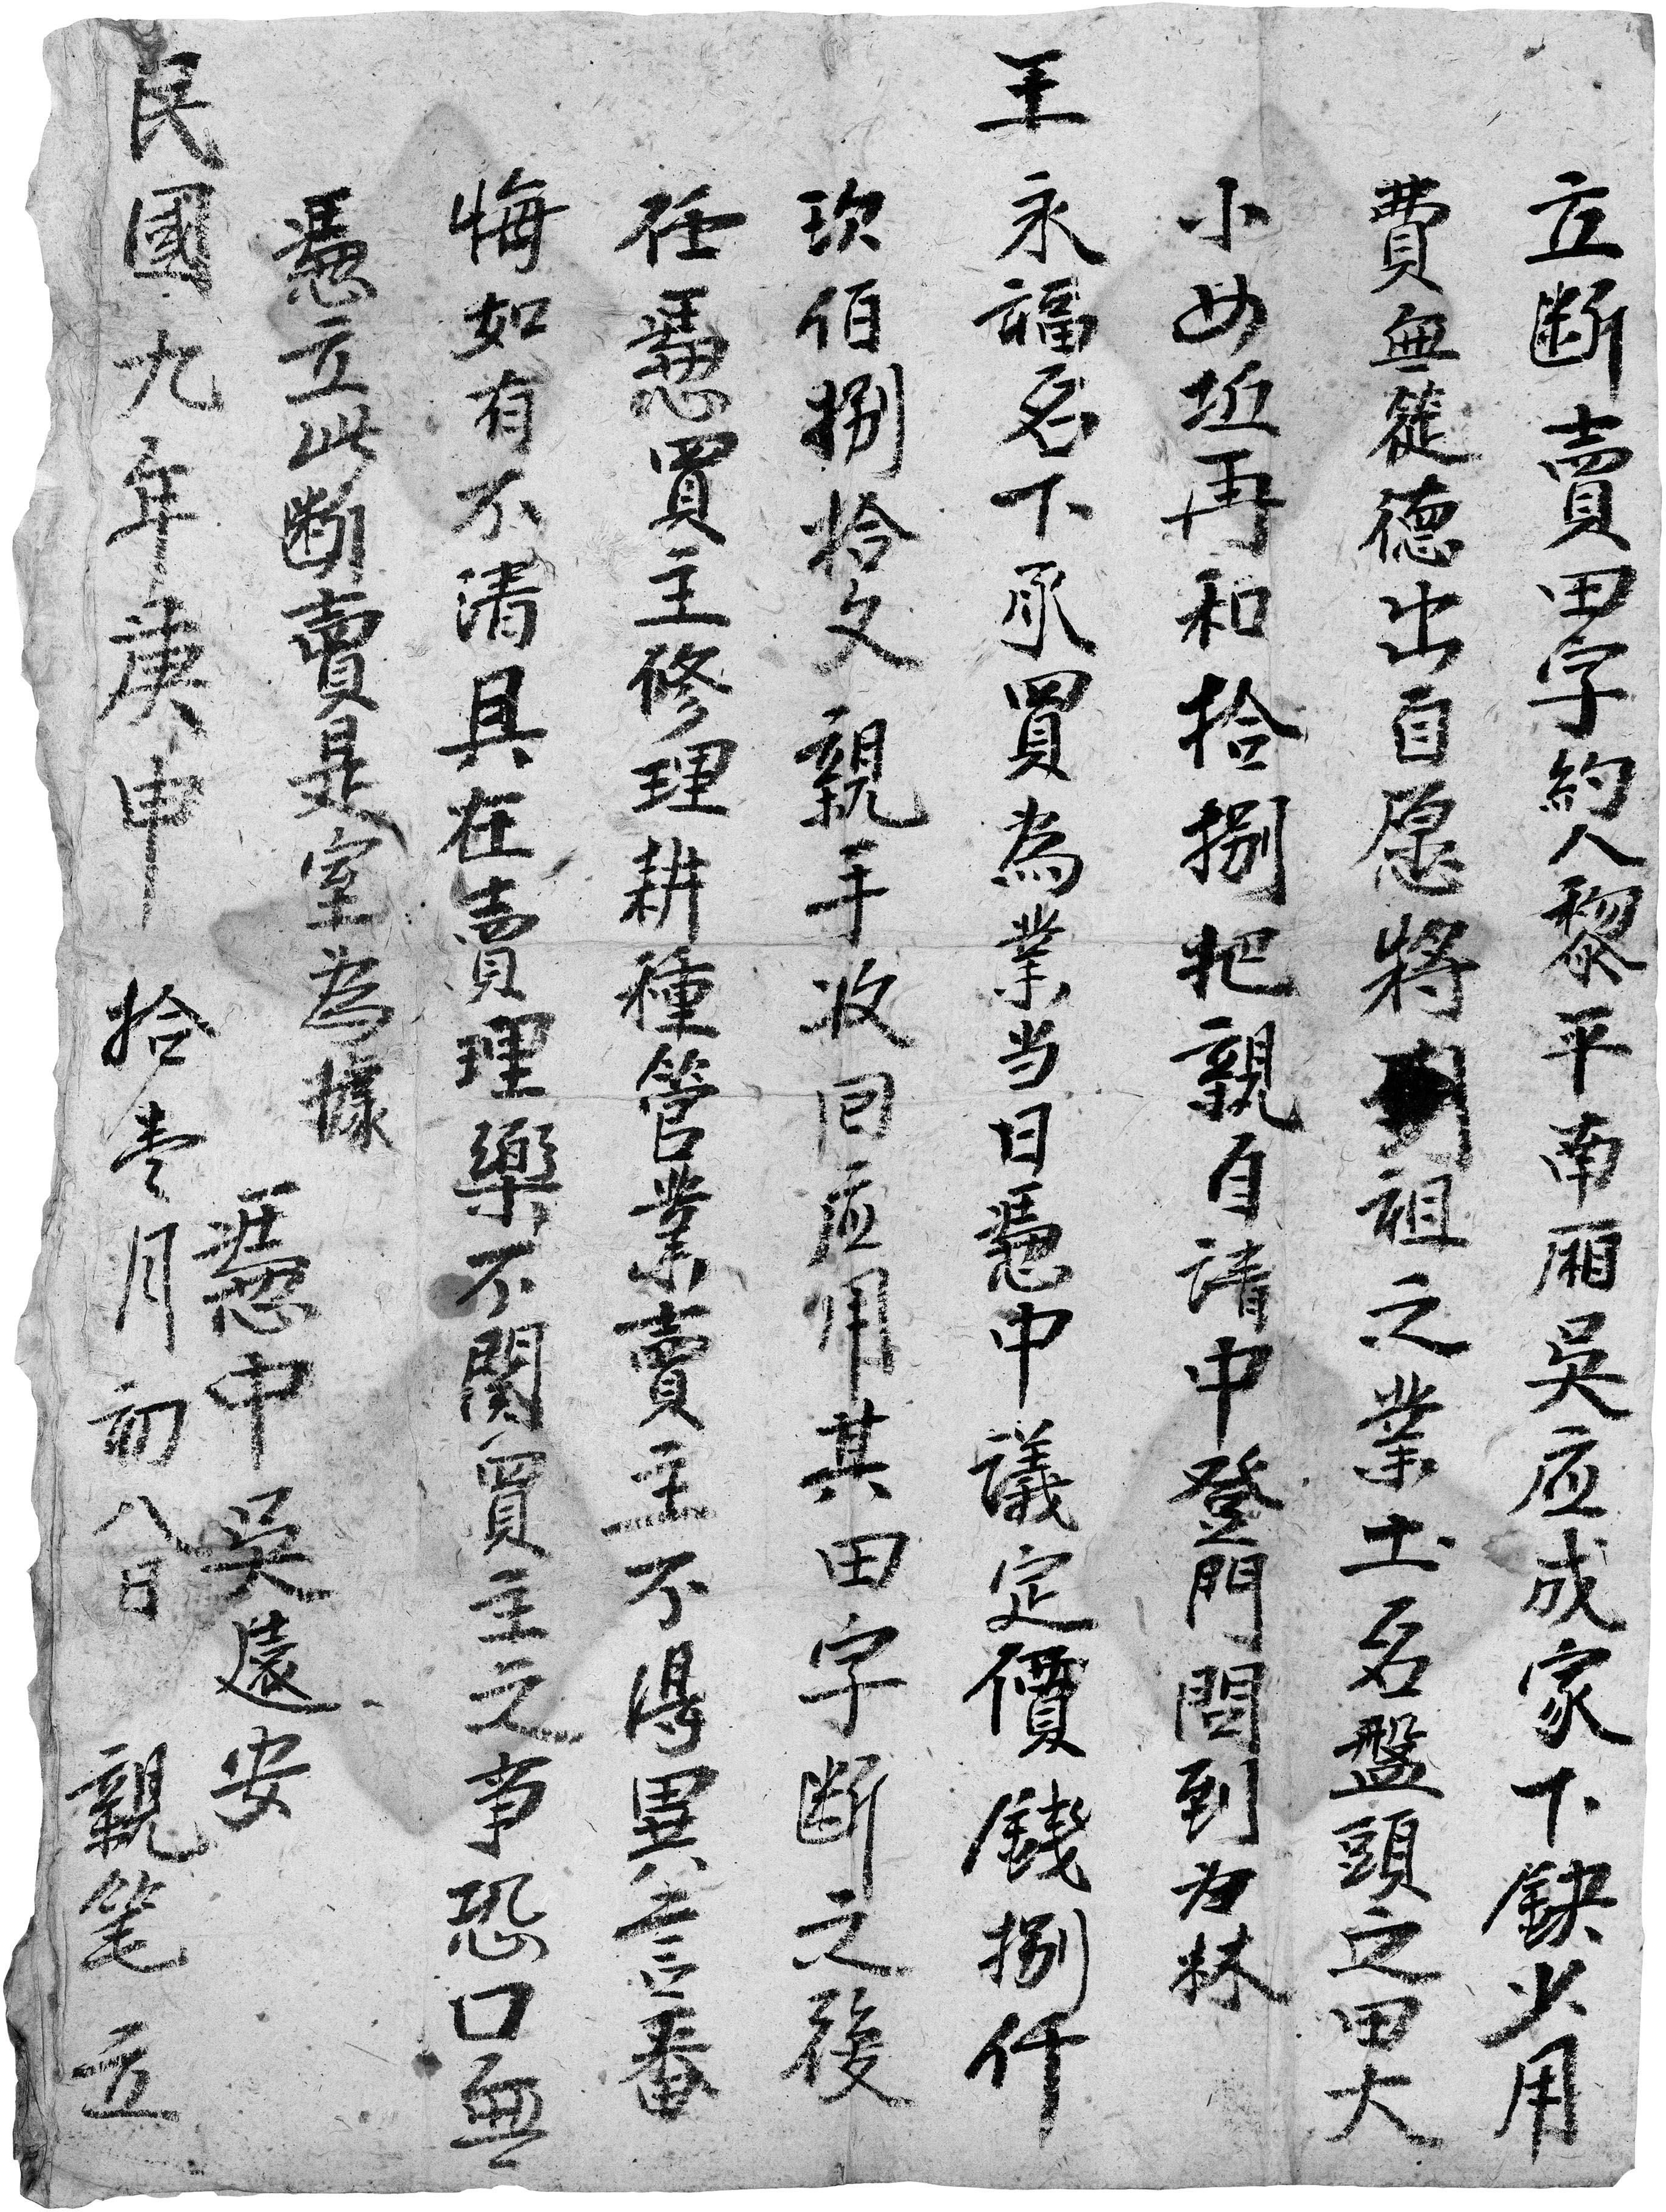 立断賣田字約人黎平南廂吳应成家下缺少用
費無徔德出自愿將祖之業土名盤頭之田大
小四坵再和拾捌把親自请中登門問到為林
王永福名下承買為業当日憑中議定價錢捌仟
玖伯捌拾文親手收回应用其田字断之後
任憑買主修理耕種管業賣主不得異言番
悔如有不清具在賣理樂不関買主之事恐口無
憑立此断賣是室為據
憑中吳遠安
民國九年庚申拾壹月初八日親笔立